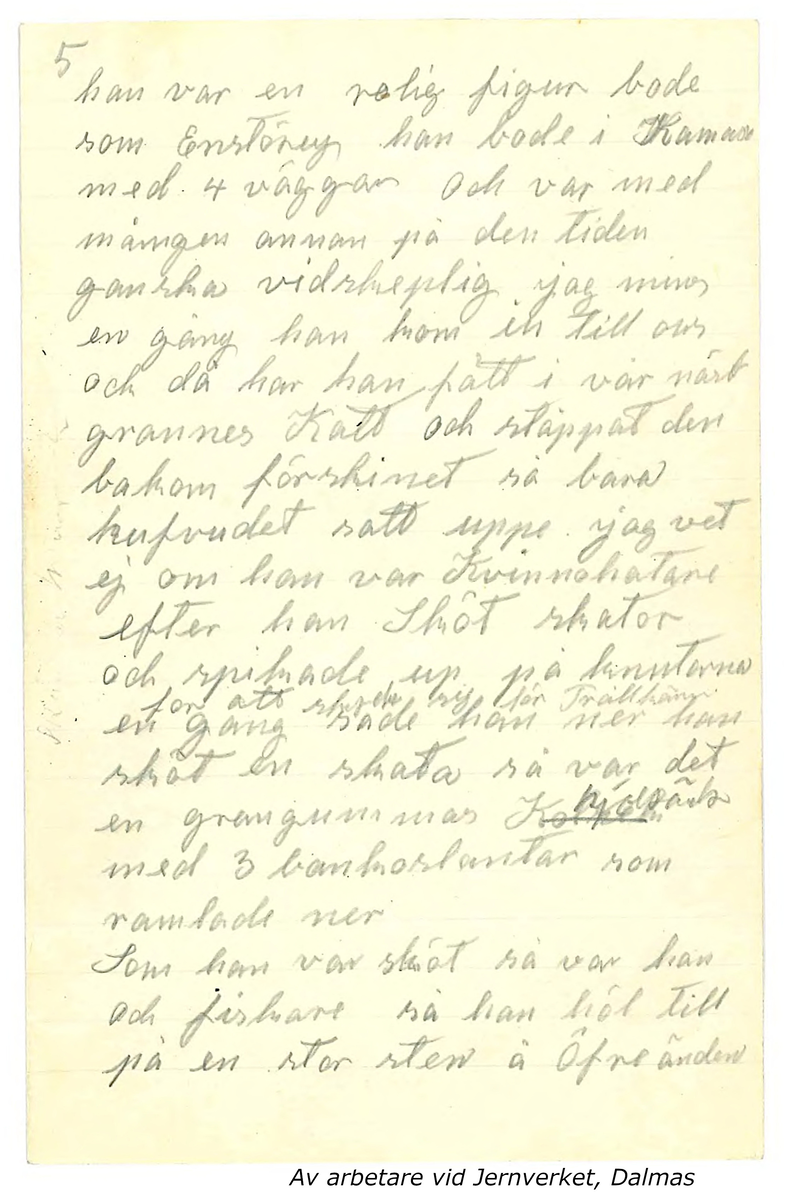 5
han var en rolig figur bode
som Enstöring han bode i Kamare
med 4 väggar Och var med
mången annan på den tiden
ganska vidskeplig jag mins
en gång han kom in till oss
och då har han fått i vår näst
grannes Katt och stoppat den
bakom förskinet så bara
hufvudet satt uppe jag vet
ej om han var Kvinnohatare
efter han Sköt skator
och spikade up på knutarna
for att skydda sig för Trollkärr
en gång sade han när han
sköt en skata så var det
en grangummas Kjolsäck
med 3 bankoslantar som
ramlade ner
Som han var sköt så var han
och fiskare så han höl till
på en stor sten å Öfre änden
Av arbetare vid Jernverket, Dalmas